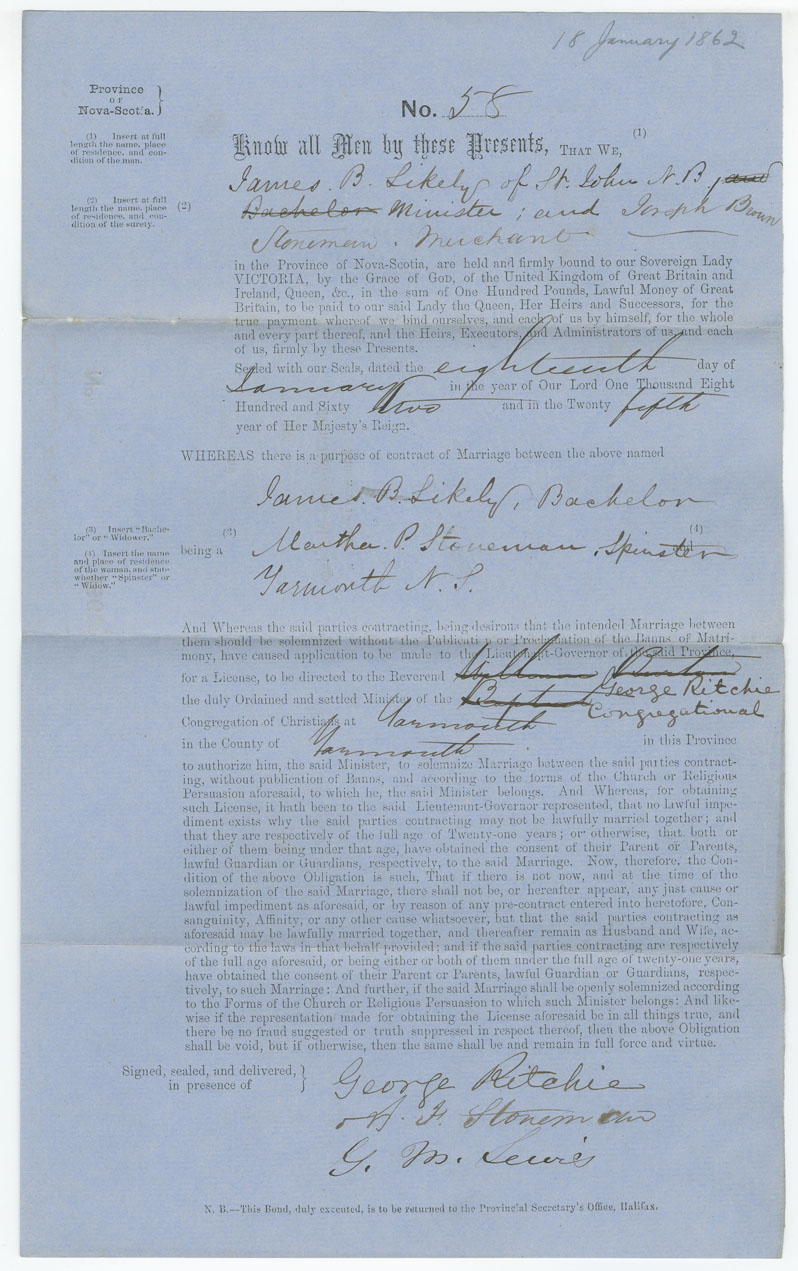 18 January 1862
Province
OF
Nova-Scotia.
No. 58
(1) Insert at full
length the name, place
of residence, and con-
dition of the man.
Know all Men by these Presents, THAT WE, (1)
James. B. Likely of St. John N. B, and
(2) Insert at full
length the name, place
of residence, and con-
dition of the surety.
(2)
Bachelor Minister; and Joseph Brown
Stoneman. Merchant
in the Province of Nova-Scotia, are held and firmly bound to our Sovereign Lady
VICTORIA, by the Grace of GOD, of the United Kingdom of Great Britain and
Ireland, Queen, &c., in the sum of One Hundred Pounds, Lawful Money of Great
Britain, to be paid to our said Lady the Queen, Her Heirs and Successors, for the
true payment whereof we bind ourselves, and each of us by himself, for the whole
and every part thereof, and the Heirs, Executors, and Administrators of us, and each
of us, firmly by these Presents.
Sealed with our Seals, dated the eighteenth day of
January in the year of Our Lord One Thousand Eight
Hundred and Sixty two and in the Twenty fifth
year of Her Majesty's Reign.
WHEREAS there is a purpose of contract of Marriage between the above named
James. B. Likely, Bachelor
(3) Insert "Bache-
lor" or "Widower."
(4) Insert the name
and place of residence
of the woman, and state
whether "Spinster" or
"Widow."
being a (3) Martha. P. Stoneman, Spinster and (4)
Yarmouth N. S.
And Whereas the said parties contracting, being desirous that the intended Marriage between
them should be solemnized without the Publication or Proclamation of the Banns of Matri-
mony, have caused application to be made to the Lieutenant-Governor of the said Province,
for a License, to be directed to the Reverend William Burton
George Ritchie
the duly Ordained and settled Minister of the Baptist
Congregational
Congregation of Christians at Yarmouth
in the County of Yarmouth in this Province
to authorize him, the said Minister, to solemnize Marriage between the said parties contract-
ing, without publication of Banns, and according to the forms of the Church or Religious
Persuasion aforesaid, to which he, the said Minister belongs. And Whereas, for obtaining
such License, it hath been to the said Lieutenant-Governor represented, that no lawful impe-
diment exists why the said parties contracting may not be lawfully married together; and
that they are respectively of the full age of Twenty-one years; or otherwise, that both or
either of them being under that age, have obtained the consent of their Parent or Parents,
lawful Guardian or Guardians, respectively, to the said Marriage. Now, therefore, the Con-
dition of the above Obligation is such, That if there is not now, and at the time of the
solemnization of the said Marriage, there shall not be, or hereafter appear, any just cause or
lawful impediment as aforesaid, or by reason of any pre-contract entered into heretofore, Con-
sanguinity, Affinity, or any other cause whatsoever, but that the said parties contracting as
aforesaid may be lawfully married together, and thereafter remain as Husband and Wife, ac-
cording to the laws in that behalf provided; and if the said parties contracting are respectively
of the full age aforesaid, or being either or both of them under the full age of twenty-one years,
have obtained the consent of their Parent or Parents, lawful Guardian or Guardians, respec-
tively, to such Marriage: And further, if the said Marriage shall be openly solemnized according
to the Forms of the Church or Religious Persuasion to which such Minister belongs: And like-
wise if the representation made for obtaining the License aforesaid be in all things true, and
there be no fraud suggested or truth suppressed in respect thereof, then the above Obligation
shall be void, but if otherwise, then the same shall be and remain in full force and virtue.
Signed, sealed, and delivered,
in presence of
George Ritchie
F. Stoneman
G. M. Lewis
N. B.—This Bond, duly executed, is to be returned to the Provincial Secretary's Office, Halifax.